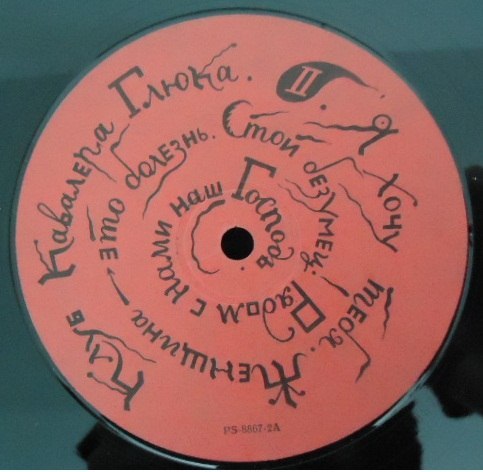 Клуб Кавалера Глюка.
II. Я хочу тебя.
Женщина — это болезнь.
Стой безумец!
Рядом с нами наш Господь.
PS-8867-2A